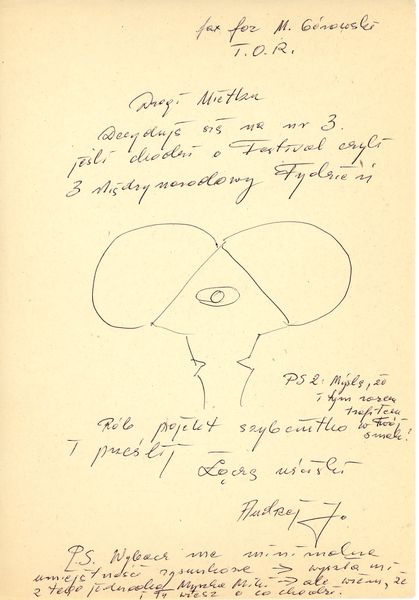 fax for M. Górowski
T.O.R.
Drogi Mietku
Decyduję się na nr 3.
jeśli chodzi o Festival czyli
3 Międzynarodowy Tydzień
PS 2: Myślę, że
i tym razem
trafiłem
w Twój
smak!
Rób projekt szybciutko
i prześlij
Łączą uściski
Andrzej J.
P.S. Wybacz me minimalne
umiejętności rysunkowe → wyszła mi
z tego jednooka Myszka Miki → ale wiem, że
i Ty wiesz o co chodzi.